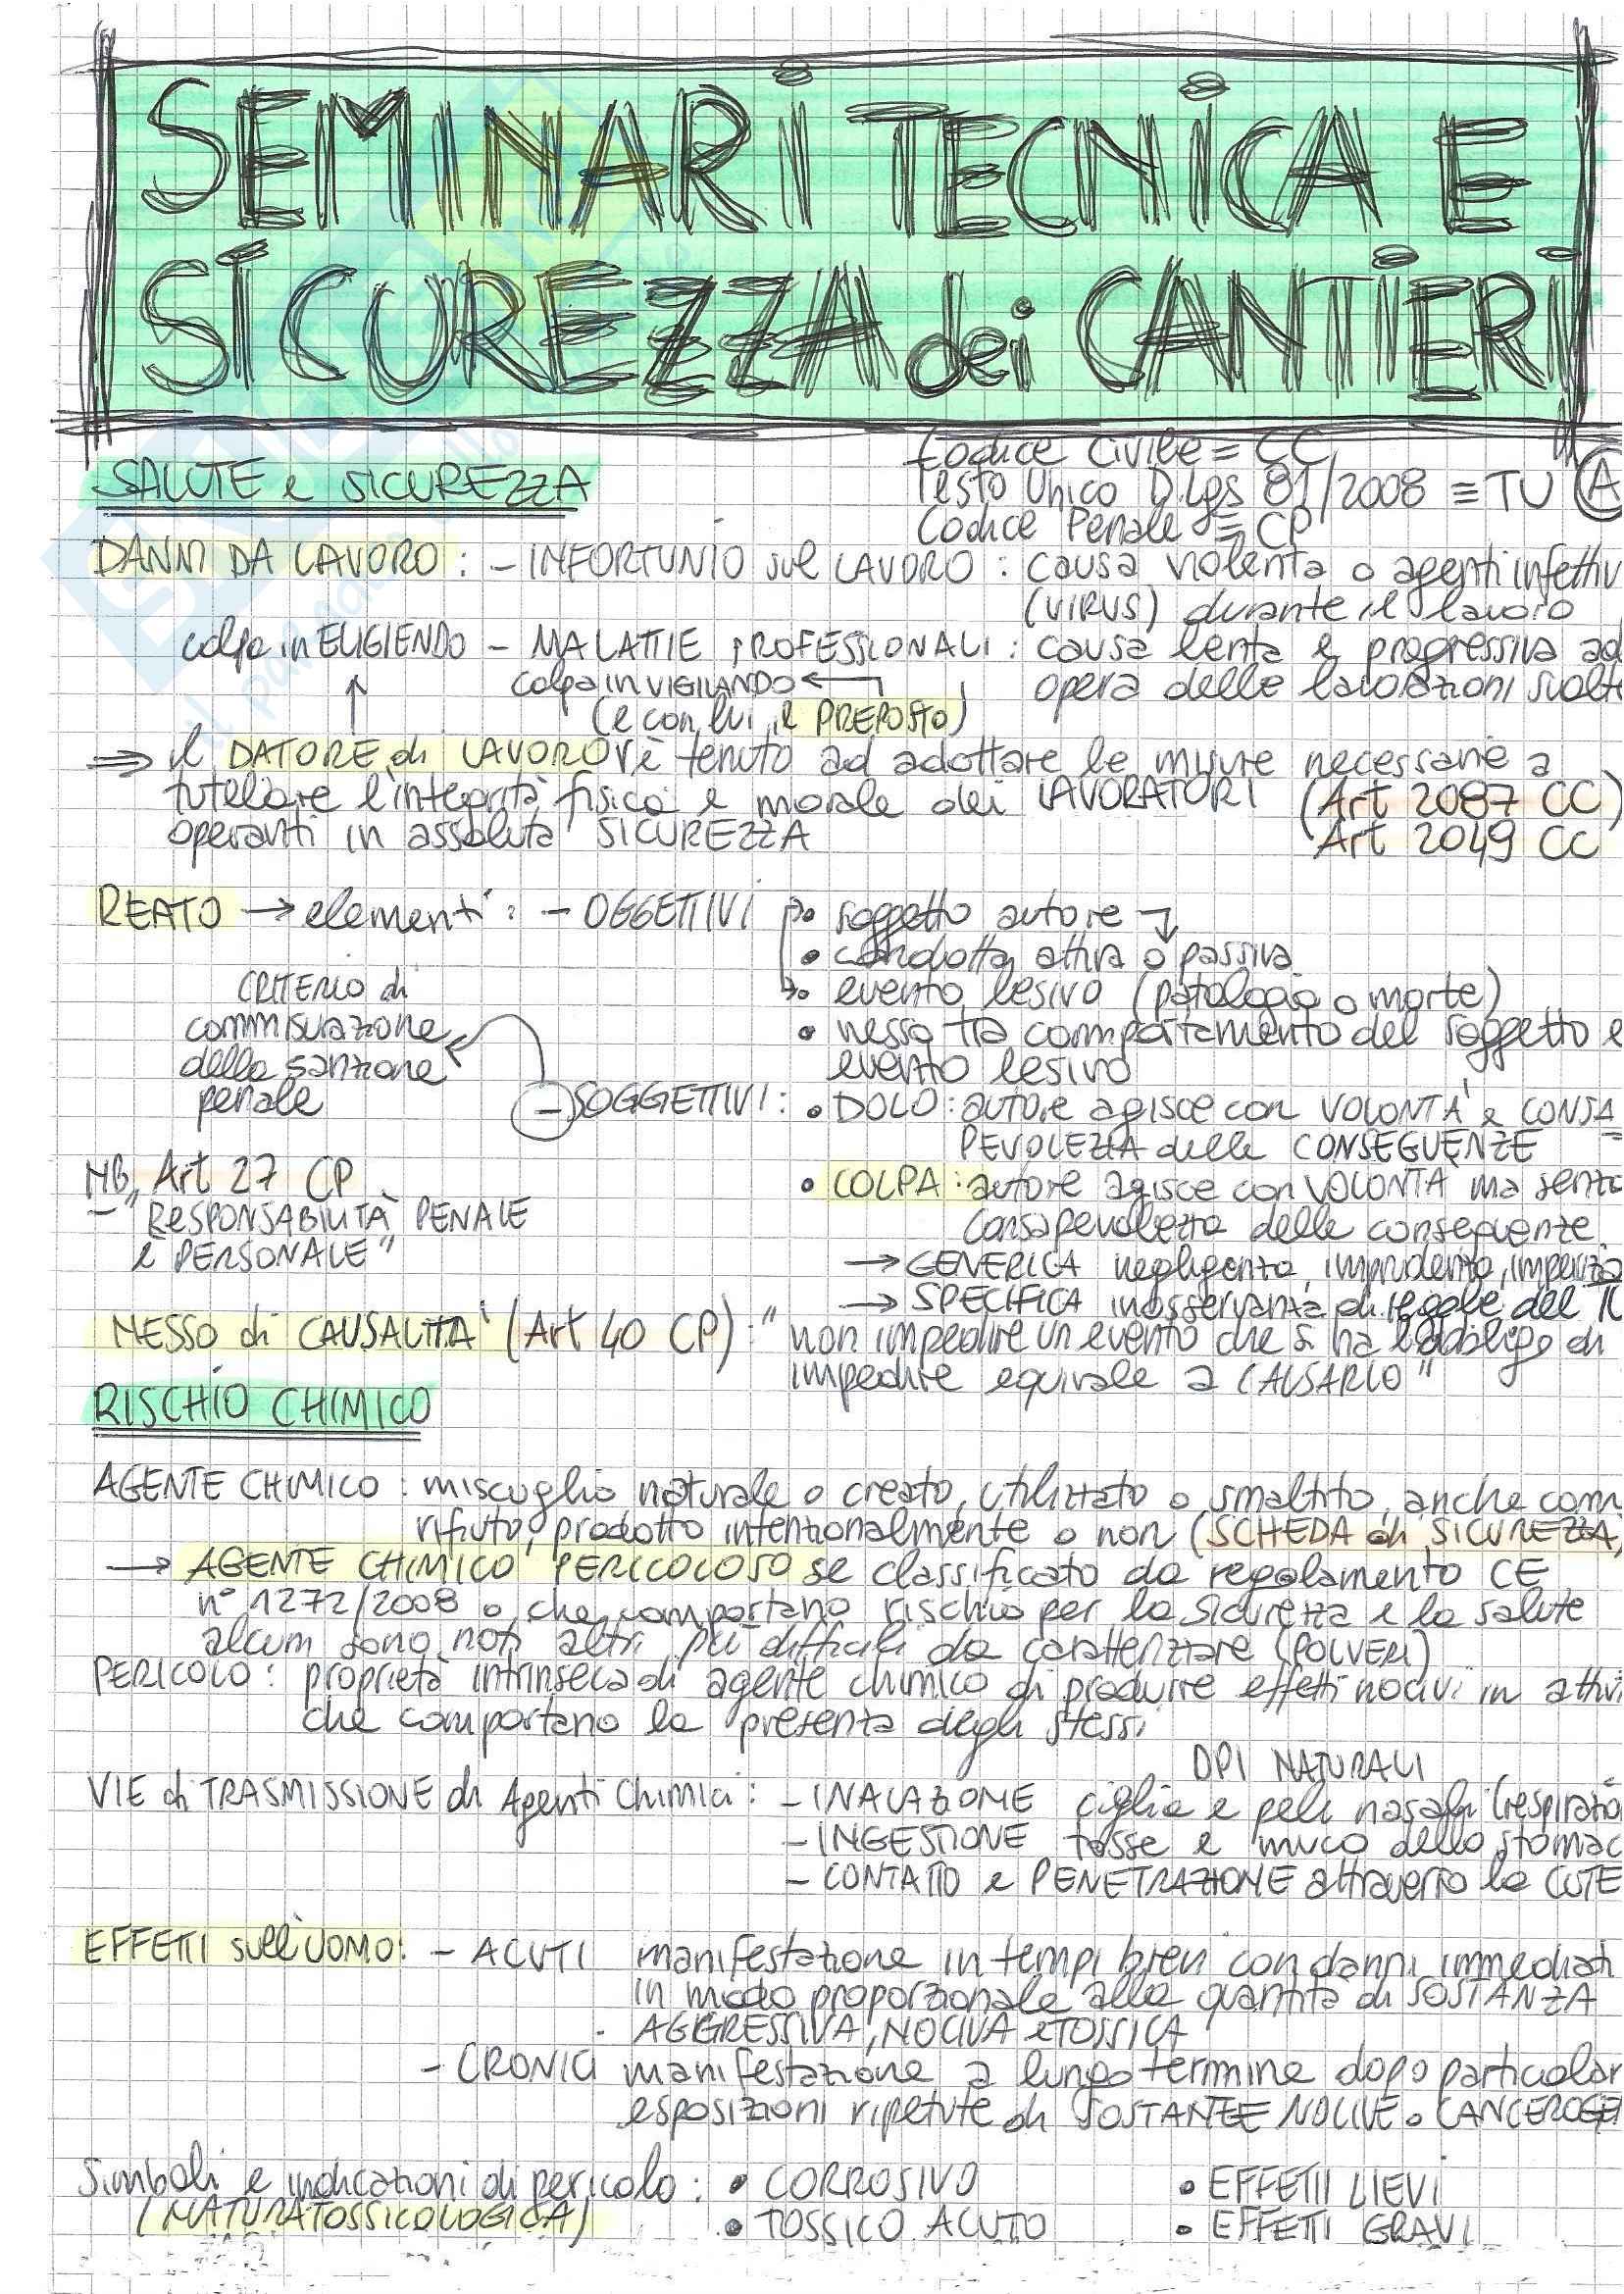 SEMINARI TECNICA E
SICUREZZA dei CANTIERI
Codice Civile ≡ CC
SALUTE e SICUREZZA
Testo Unico D.Lgs 81/2008 ≡ TU A
Codice Penale ≡ CP
DANNI DA LAVORO : - INFORTUNIO sul LAVORO : causa violenta o agenti infettiv
(VIRUS) durante il lavoro
colpa in ELIGIENDO - MALATTIE PROFESSIONALI : causa lenta e progressiva ad
colpa IN VIGILANDO ← opera delle lavorazioni svolte
(e con lui il PREPOSTO)
⇒ il DATORE di LAVORO è tenuto ad adottare le misure necessarie a
tutelare l'integrità fisica e morale dei LAVORATORI (Art 2087 CC)
operanti in assoluta SICUREZZA Art 2049 CC
REATO → elementi : - OGGETTIVI • soggetto autore
• condotta attiva o passiva
• evento lesivo (patologia o morte)
CRITERIO di
commisurazione • nesso tra comportamento del soggetto e
della sanzione evento lesivo
penale - SOGGETTIVI : • DOLO : autore agisce con VOLONTÀ e CONSA
PEVOLEZZA delle CONSEGUENZE
NB Art 27 CP • COLPA : autore agisce con VOLONTÀ ma senza
- "RESPONSABILITÀ PENALE consapevolezza delle conseguenze
è PERSONALE" → GENERICA negligenza, imprudenza, imperizia
→ SPECIFICA inosservanza di regole del TU
NESSO di CAUSALITÀ (Art 40 CP) : "non impedire un evento che si ha l'obbligo di
impedire equivale a CAUSARLO"
RISCHIO CHIMICO
AGENTE CHIMICO : miscuglio naturale o creato, utilizzato o smaltito, anche come
rifiuto, prodotto intenzionalmente o non (SCHEDA di SICUREZZA)
→ AGENTE CHIMICO PERICOLOSO se classificato da regolamento CE
n° 1272/2008 o che comportano rischio per la sicurezza e la salute
alcuni sono noti altri più difficili da caratterizzare (POLVERI)
PERICOLO : proprietà intrinseca di agente chimico di produrre effetti nocivi in attivi
che comportano la presenza degli stessi
DPI NATURALI
VIE di TRASMISSIONE di Agenti Chimici : - INALAZIONE ciglia e peli nasali (respirato
- INGESTIONE tosse e muco dello stomac
- CONTATTO e PENETRAZIONE attraverso la CUTE
EFFETTI sull'UOMO : - ACUTI manifestazione in tempi brevi con danni immediati
in modo proporzionale alla quantità di SOSTANZA
AGGRESSIVA, NOCIVA e TOSSICA
- CRONICI manifestazione a lungo termine dopo particolar
esposizioni ripetute di SOSTANZE NOCIVE o CANCEROGE
Simboli e indicazioni di pericolo : • CORROSIVO • EFFETTI LIEVI
(NATURA TOSSICOLOGICA) • TOSSICO ACUTO • EFFETTI GRAVI